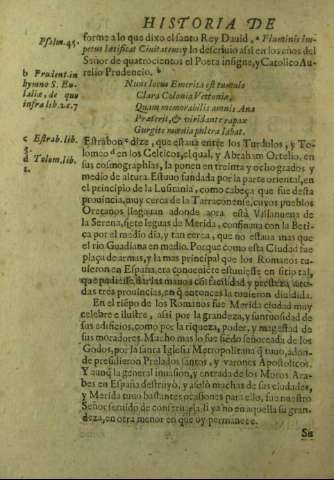 HISTORIA DE
Psalm. 45.
forme a lo que dixo el santo Rey Dauid, a Fluminis im-
petus lætificat Ciuitatem: y lo descriuio assi en los años del
Señor de quatrocientos el Poeta insigne, y Catolico Au-
relio Prudencio. b
b Prudent. in
hymno S. Eu-
laliæ, de quo
infra lib. 2. c. 7
Nunc locus Emerita est tumulo
Clara Colonia Vettoniæ,
Quam memorabilis amnis Ana
Præterit, & viridante rapax
Gurgite mœnia pulcra labat.
c Estrab. lib.
3.
d Tolom. lib.
2.
Estrabon c dize, que estaua entre los Turdulos, y To-
lomeo d en los Celticos, el qual, y Abraham Ortelio, en
sus cosmographias, la ponen en treinta y ocho grados y
medio de altura. Estuuo fundada por la parte oriental, en
el principio de la Lusitania, como cabeça que fue desta
prouincia, muy cerca de la Tarraconense, cuyos pueblos
Oretanos llegauan adonde aora està Villanueua de
la Serena, siete leguas de Merida, confinaua con la Beti-
ca por el medio dia, y tan cerca, que no estaua mas que
el rio Guadiana en medio. Porque como esta Ciudad fue
plaça de armas, y la mas principal que los Romanos tu-
uieron en España, era conueniente estuuiesse en sitio tal,
que pudiesse darlas manos con facilidad y presteza a to-
das tres prouincias, en q̃ entonces la tuuieron diuidida.
En el tiẽpo de los Romanos fue Merida ciudad muy
celebre e ilustre, assi por la grandeza, y suntuosidad de
sus edificios, como por la riqueza, poder, y magestad de
sus moradores. Mucho mas lo fue siẽdo señoreada de los
Godos, por la santa Iglesia Metropolitana q̃ tuuo, adon-
de presidieron Prelados santos, y varones Apostolicos.
Y aunq̃ la general inuasion, y entrada de los Moros Ara-
bes en España destruyò, y asolò muchas de sus ciudades,
y Merida tuuo bastantes ocasiones para ello, fue nuestro
Señor seruido de conseruarla, si ya no en aquella su gran-
deza, en otra menor en que oy permanece.
Su